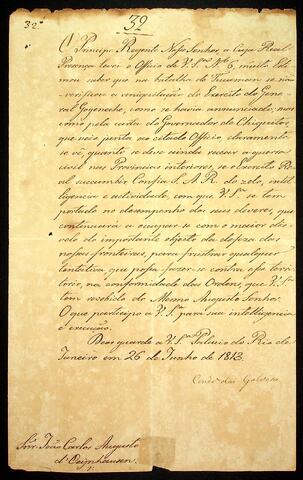 32ª
39
O Principe Regente Nosso Senhor, a Cuja Real
Prezença levei o Officio de V. Sª Nº 6, muito Esti-
mou saber que na batalha de Tucuman se não
verificou a aniquilação do Exercito do Gene-
ral Goyeneche, como se havia annunciado; mas
como pela carta do Governador de Chiquitos,
que veio junta ao citado Officio, claramente
se vê, quanto se deve ainda recear a guerra
civil nas Provincias interiores, se o Exercito Re-
al succumbir: Confia S. A. R. do zelo, intel-
ligencia e actividade, com que V. Sª se tem
portado no desempenho dos seus deveres, que
continuará a occupar-se com o maior dis-
velo do importante objecto da defeza das
nossas fronteiras, para frustrar qualquer
tentativa, que possa fazer-se contra esse terri-
torio, na conformidade das Ordens, que V. Sª
tem recebido do Mesmo Augusto Senhor.
O que participo a V. Sª para sua intelligencia
e execução.
Deos guarde a V. Sª Palacio do Rio de
Janeiro em 26 de Junho de 1813.
Conde das Galveas
Snr. João Carlos Augusto
d'Oeynhausen.